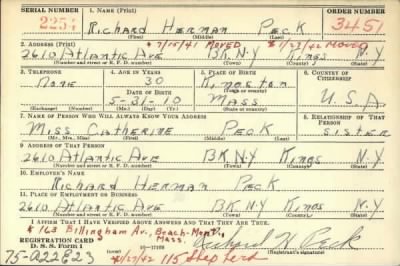 SERIAL NUMBER 1. NAME (Print) ORDER NUMBER
2254 Richard Herman Peck 3451
(First) (Middle) (Last)
2. ADDRESS (Print) * 7/15/41 MOVED * 1/27/42 MOVED
2610 Atlantic Ave BK. N.Y Kings N.Y
(Number and street or R. F. D. number) (Town) (County) (State)
3. TELEPHONE 4. AGE IN YEARS 5. PLACE OF BIRTH 6. COUNTRY OF CITIZENSHIP
None 30 Kingston
DATE OF BIRTH (Town or county)
5-31-10 Mass U.S.A
(Exchange) (Number) (Mo.) (Day) (Yr.) (State or country)
7. NAME OF PERSON WHO WILL ALWAYS KNOW YOUR ADDRESS 8. RELATIONSHIP OF THAT PERSON
Miss Catherine Peck Sister
(Mr., Mrs., Miss) (First) (Middle) (Last)
9. ADDRESS OF THAT PERSON
2610 Atlantic Ave BK N.Y Kings N.Y.
(Number and street or R. F. D. number) (Town) (County) (State)
10. EMPLOYER'S NAME
Richard Herman Peck
11. PLACE OF EMPLOYMENT OR BUSINESS
2610 Atlantic Ave BK N.Y Kings N.Y.
(Number and street or R. F. D. number) (Town) (County) (State)
I AFFIRM THAT I HAVE VERIFIED ABOVE ANSWERS AND THAT THEY ARE TRUE.
* 163 Billingham Av., Beach-Mont,
Mass.
REGISTRATION CARD
D. S. S. Form 1 Richard H Peck
(Registrant's signature)
75-A22E23 *1/27/42 115 Shepherd